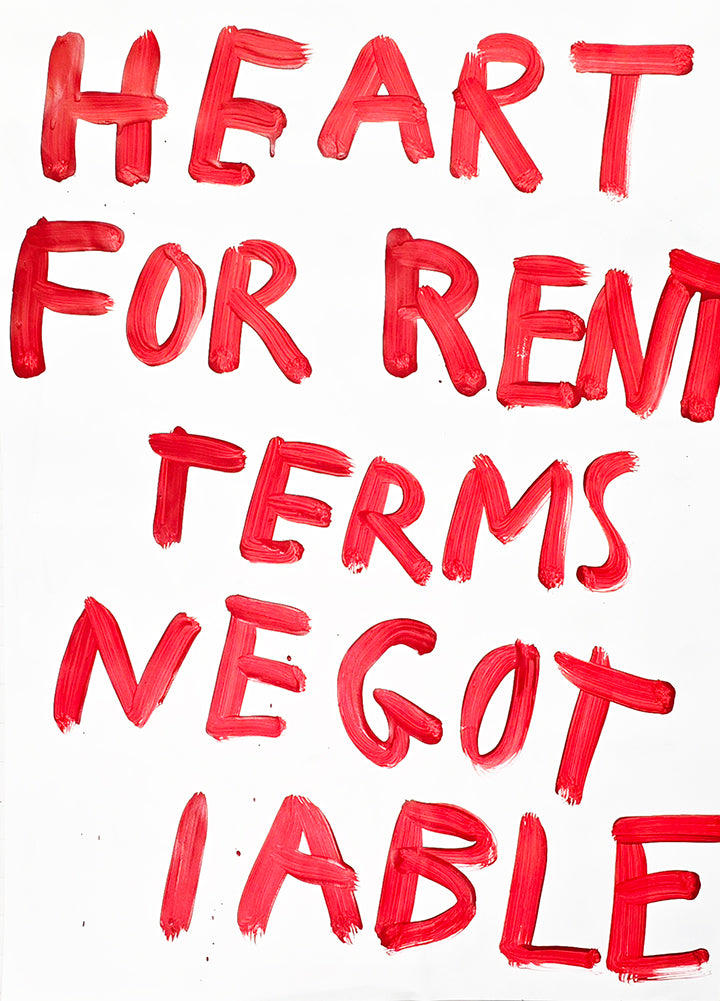 HEART
FOR RENT
TERMS
NEGOT
IABLE